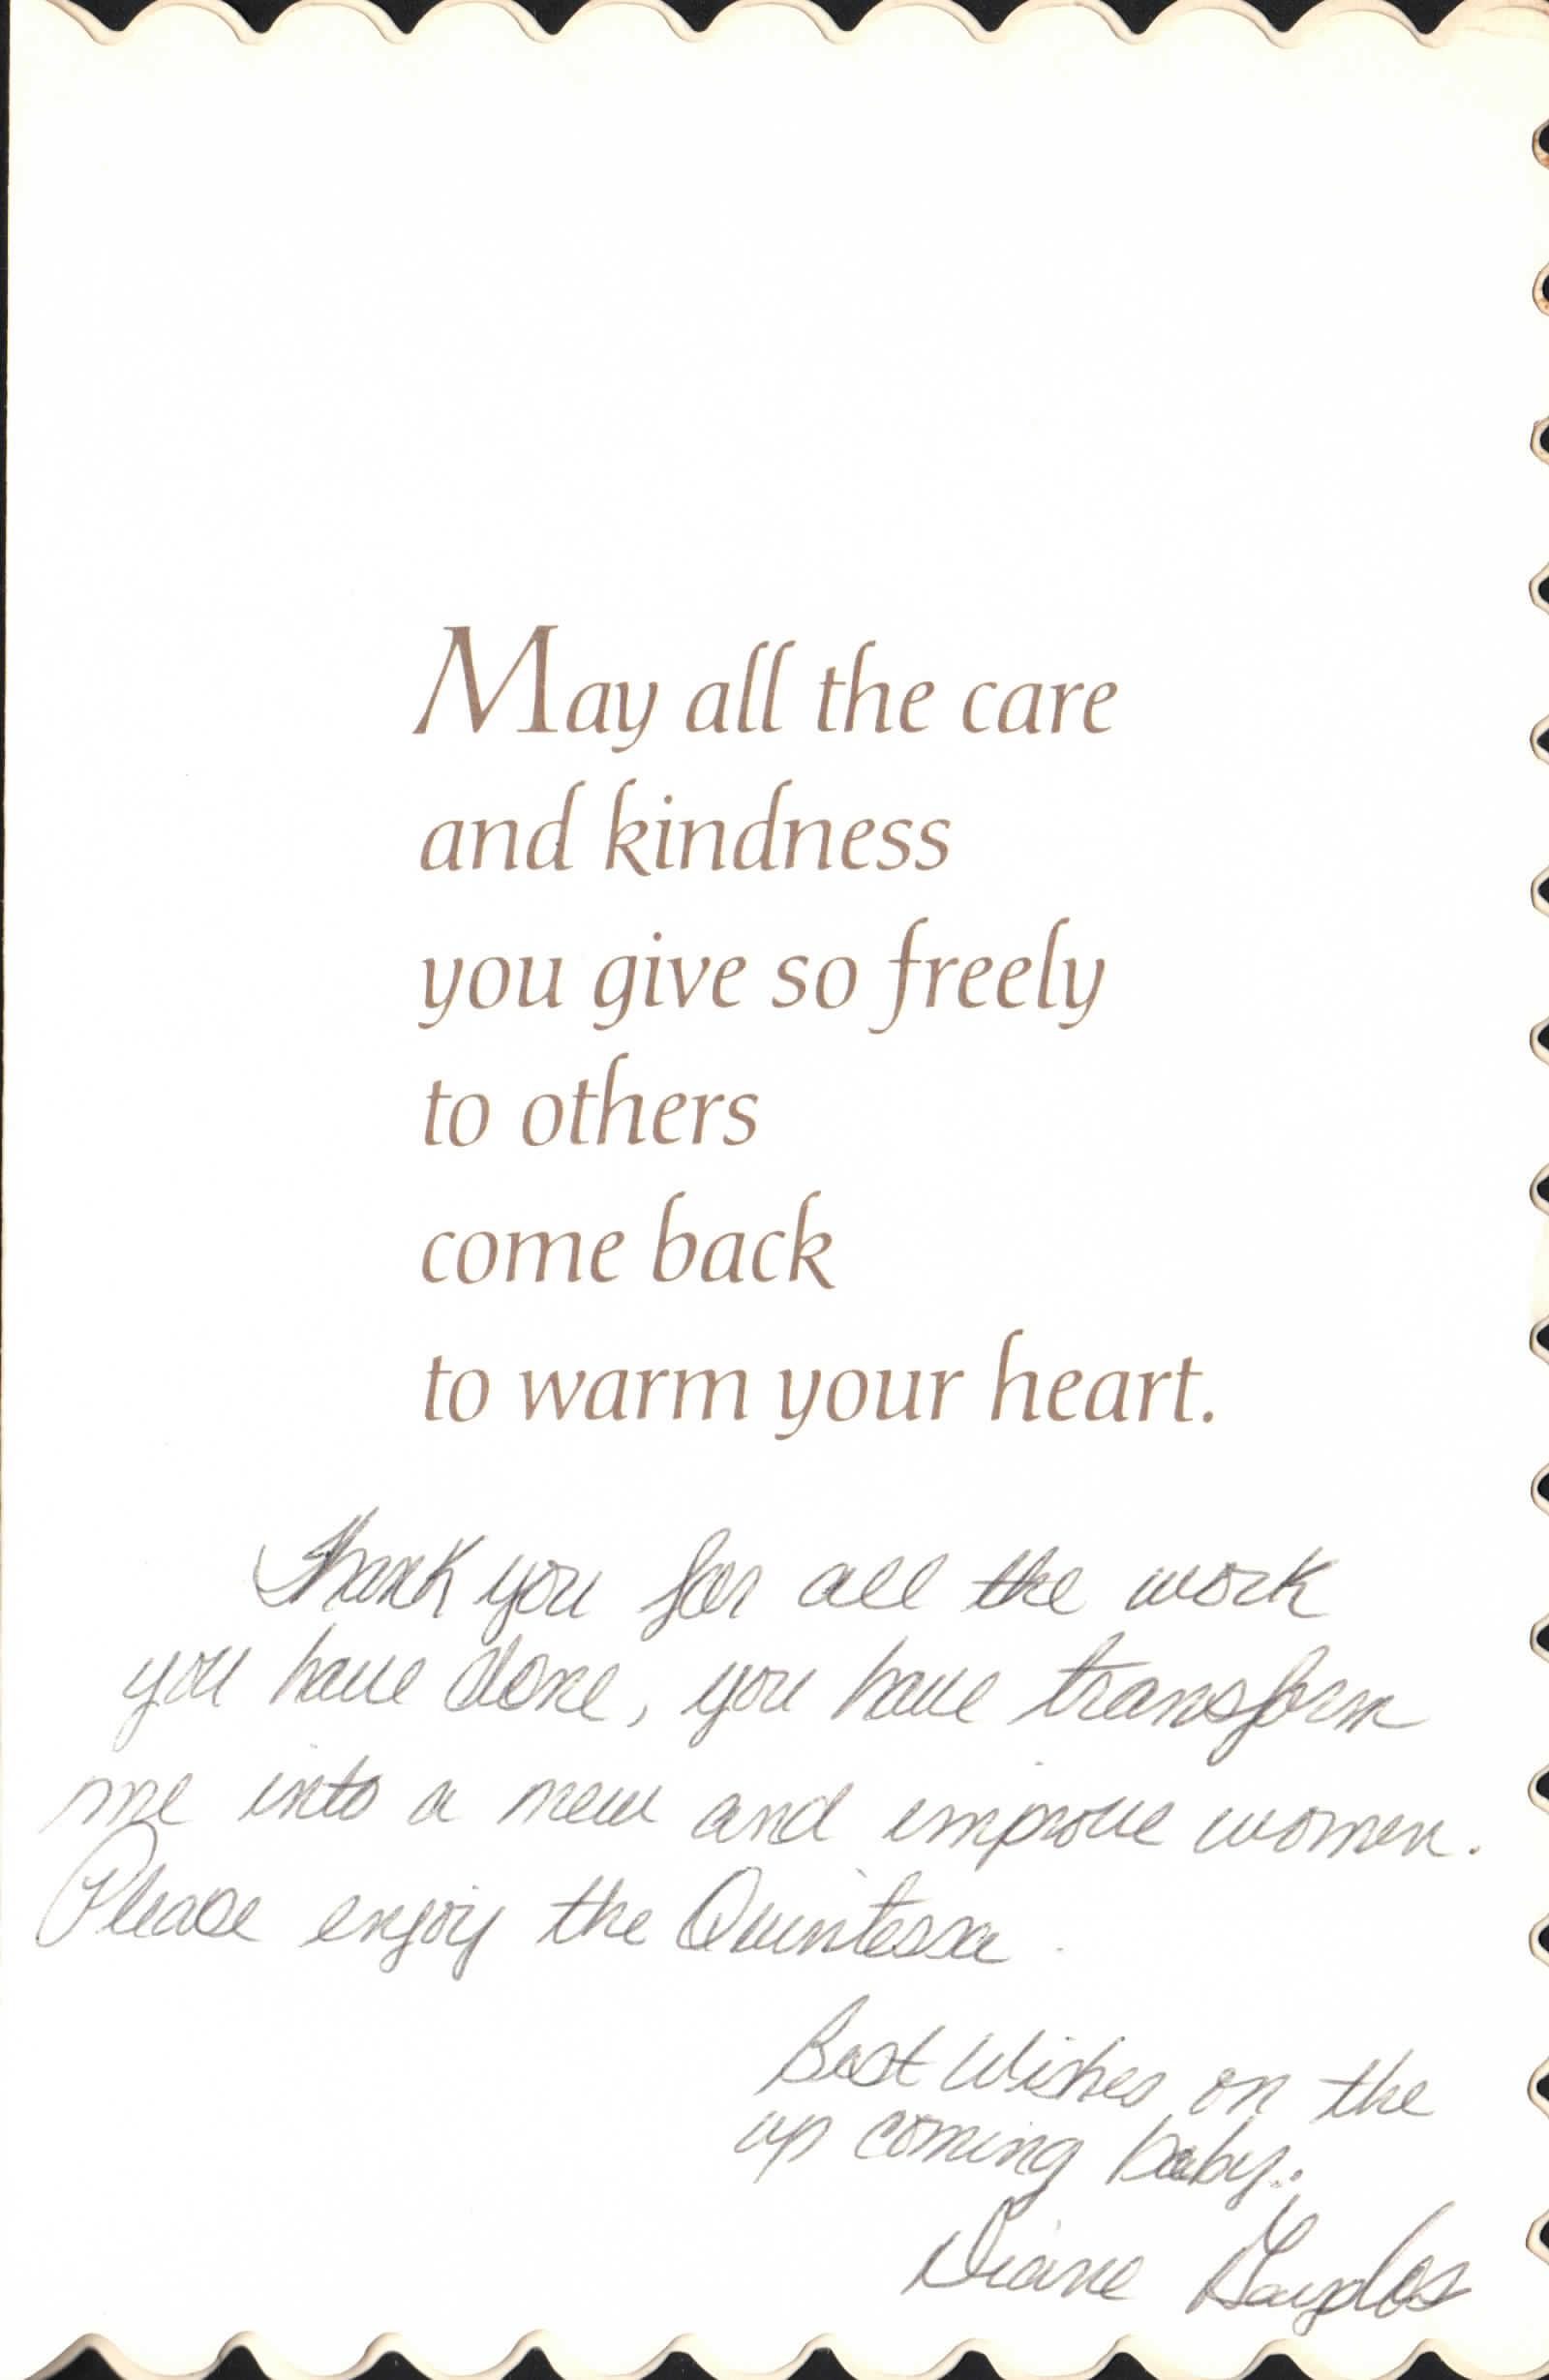 May all the care
and kindness
you give so freely
to others
come back
to warm your heart.
Thank you for all the work
you have done, you have transform
me into a new and improve women.
Please enjoy the Quintessa.
Best Wishes on the
up coming baby.
Diane